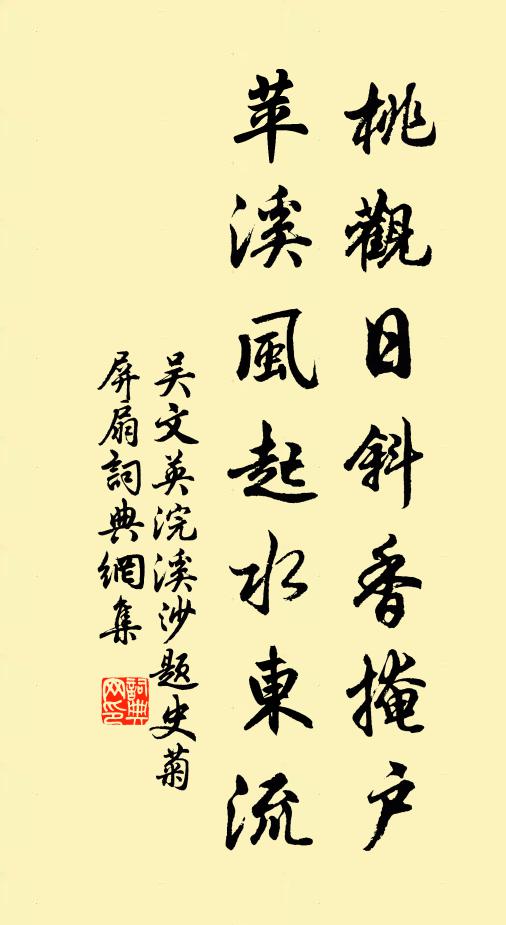 桃觀日斜香掩户
苹溪風起水東流
吴文英浣溪沙題史菊
屏扇詞典網集
詞典
网印